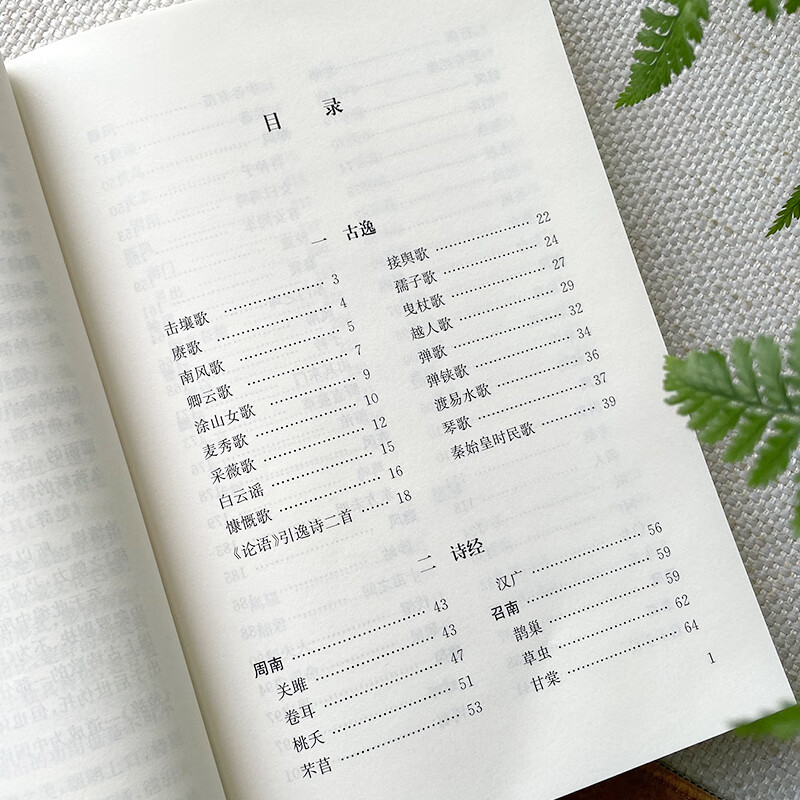 目 录
一 古逸
击壤歌 …… 3
赓歌 …… 4
南风歌 …… 5
卿云歌 …… 7
涂山女歌 …… 9
麦秀歌 …… 10
采薇歌 …… 12
白云谣 …… 15
慷慨歌 …… 16
《论语》引逸诗二首 …… 18
接舆歌 …… 22
孺子歌 …… 24
曳杖歌 …… 27
越人歌 …… 29
弹歌 …… 32
弹铗歌 …… 34
渡易水歌 …… 36
琴歌 …… 37
秦始皇时民歌 …… 39
二 诗经
周南 …… 43
关雎 …… 43
卷耳 …… 47
桃夭 …… 51
芣苢 …… 53
汉广 …… 56
召南 …… 59
鹊巢 …… 59
草虫 …… 62
甘棠 …… 64
1